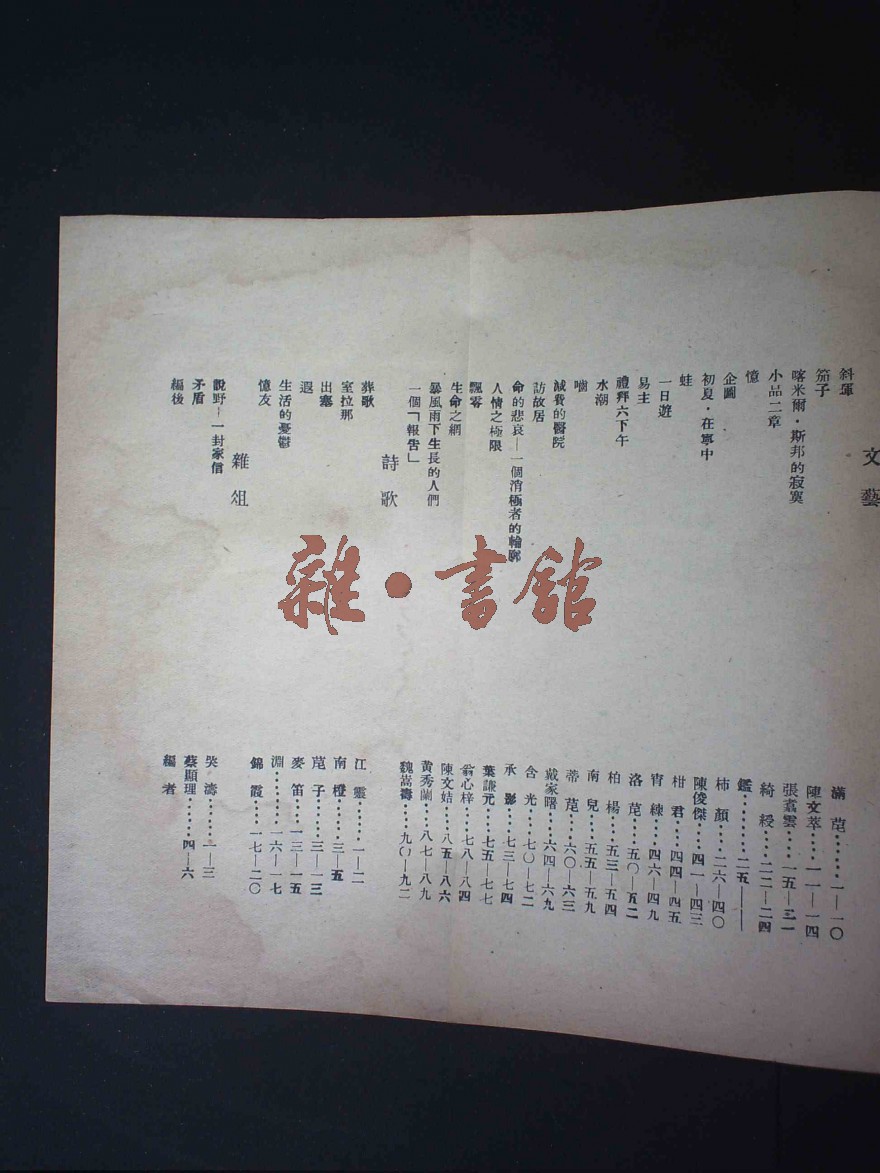 文藝
斜暉 滿苨……一—一〇
笳子 陳文萃……一一—一四
喀米爾・斯邦的寂寞 張嘉雲……一五—二一
小品二章 綺綬……二二—二四
憶 鑑……二五——
企圖 柿顏……二六—四〇
初夏・在寧中 陳俊傑……四一—四三
蛙 柑君……四四—四五
一日遊 宵練……四六—四九
易主 洛苨……五〇—五二
禮拜六下午 柏楊……五三—五四
水潮 南兒……五五—五九
嚙 蒂苨……六〇—六三
減費的醫院 戴家曙……六四—六九
訪故居 含光……七〇—七二
命的悲哀—一個消極者的輪廓 永影……七三—七四
人情之極限 葉謙元……七五—七七
飄零 翁心梓……七八—八四
生命之網 陳文姞……八五—八六
暴風雨下生長的人們 黃秀蘭……八七—八九
一個「報告」 魏嵩濤……九〇—九二
詩歌
葬歌 江靈……一—二
室拉那 南橙……三—五
出塞 苨子……三—一三
遐 麥笛……一三—一五
生活的憂鬱 淵……一六—一七
憶友 錦霞……一七—二〇
雜俎
說野—一封家信 吳濤……一—三
矛盾 蔡顯理……四—六
編後 編者
雜・書館